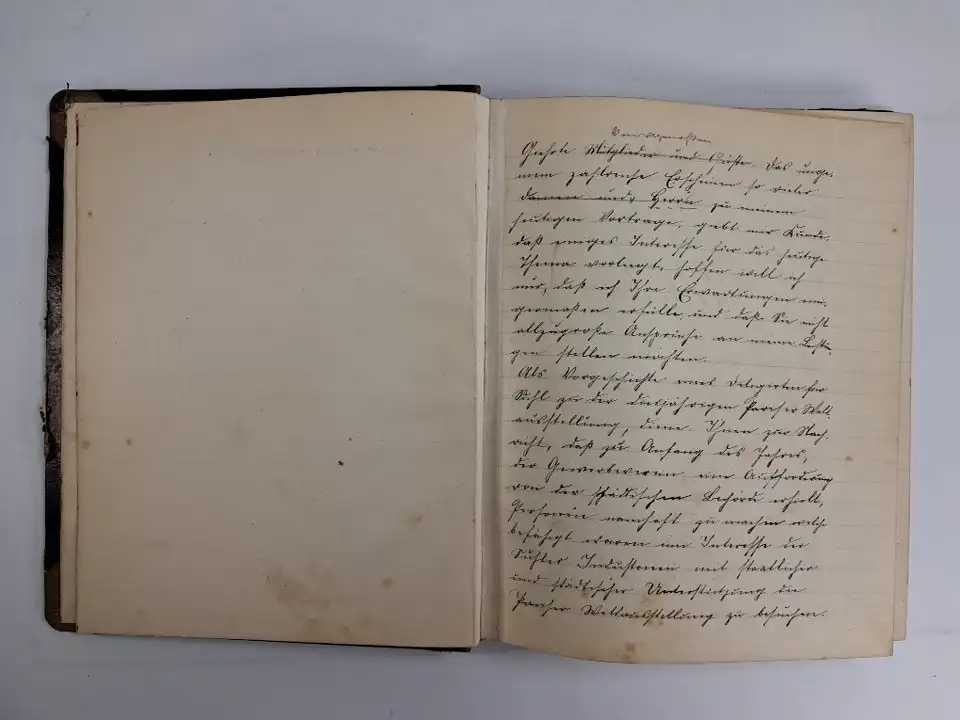 Geehrte Mitglieder und Gäste. Das unge-
mein zahlreiche Erscheinen so vieler
Damen und Herrn zu meinem
heutigen Vortrage, giebt mir Kunde,
daß einiges Interesse für das heutige
Thema vorliegt, hoffen will ich
nur, daß ich Ihre Erwartungen eini-
germaßen erfülle, und daß Sie nicht
allzugroße Ansprüche an meine Leistun-
gen stellen möchten.
Als Vorgeschichte eines Delegirten für
Suhl zu der diesjährigen Pariser Welt-
ausstellung, diene Ihnen zur Nach-
richt, daß zu Anfang des Jahres,
der Gewerbeverein eine Aufforderung
von der städtischen Behörde erhielt,
Personen namhaft zu machen welche
befähigt waren im Interesse der
Suhler Industrieen mit staatlicher
und städtischer Unterstützung die
Pariser Weltausstellung zu besuchen.